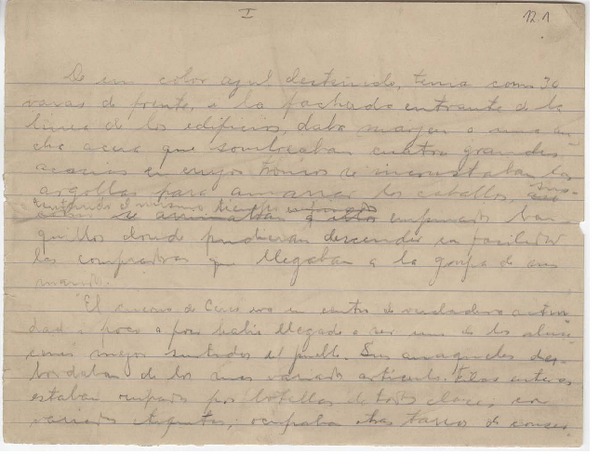 I
12.1
De un color azul desteñido, tenía como 30
varas de frente, a la fachada entrante de la
línea de los edificios, daba margen a una an-
cha acera que sombreaban cuatro grandes
acacias en cuyos troncos se incrustaban las
argollas para amarrar los caballos,
el mismo tiempo
se arrimaban a ellos empinados ban-
quillos donde pudieran descender con facilidad
las compradoras que llegaban a la grupa de sus
maridos.
El cuervo de Ceres era un centro de verdadera activi-
dad a poco a poco había llegado a ser uno de los almac-
enes mejor surtidos del pueblo. Sus anaqueles des-
bordaban de los mas variados artículos. Filas enteras
estaban ocupadas por botellas de todas clases, con
variados, ocupaba otras tarros de conser